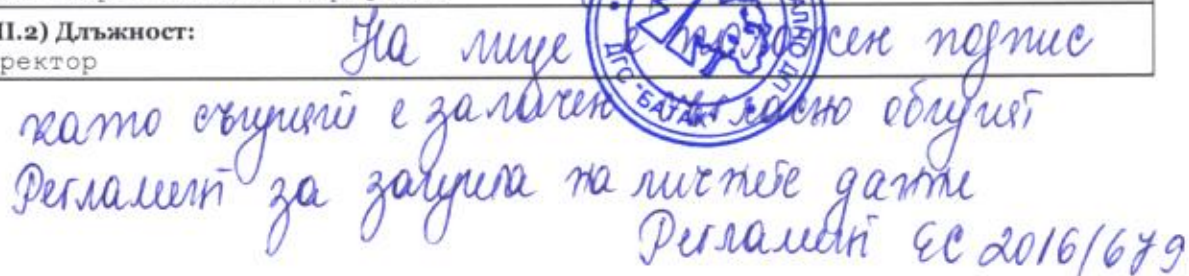 II.2) Длъжност:
ректор
На лице е положен подпис
като същият е заличен съгласно общият
Регламент за защита на личните данни
Регламент ЕС 2016/679
ДГС "БАТАК"